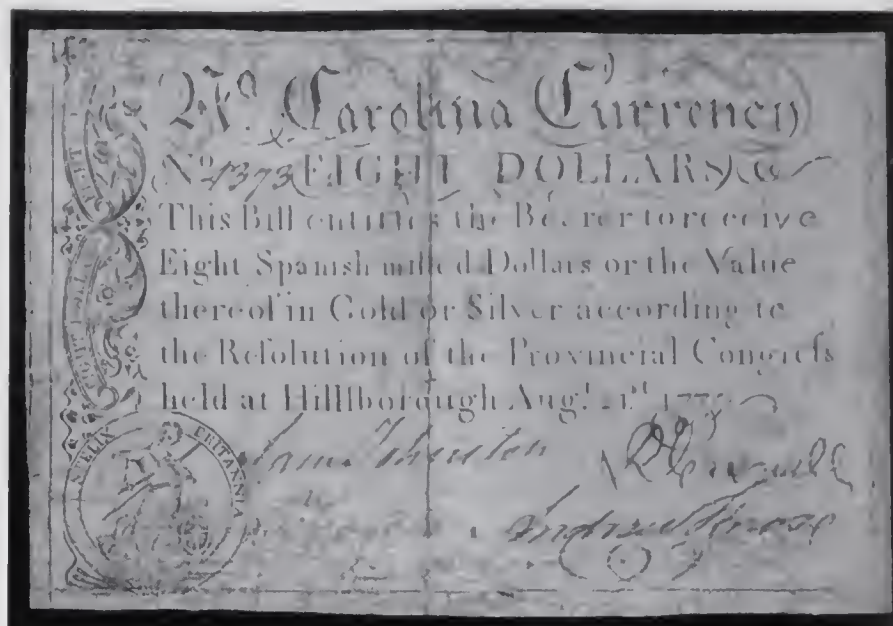 No. Carolina Currency
No 1373 EIGHT DOLLARS
This Bill entitles the Bearer to receive
Eight Spanish milled Dollars or the Value
thereof in Gold or Silver according to
the Reſolution of the Provincial Congreſs
held at Hillſborough Augt. 21st. 1775
EIGHT
S FELIX BRITANNIA
Andrew Knox